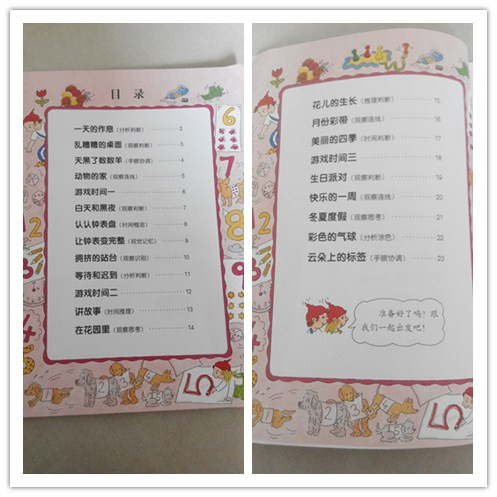 目 录
一天的作息（分析判断） 2
乱糟糟的桌面（观察判断） 3
天黑了数数羊（手眼协调） 4
动物的家（观察连线） 5
游戏时间一 6
白天和黑夜（观察判断） 7
认认钟表盘（时间概念） 8
让钟表变完整（视觉记忆） 9
拥挤的站台（观察识别） 10
等待和迟到（分析判断） 11
游戏时间二 12
讲故事（时间推理） 13
在花园里（观察思考） 14
花儿的生长（推理判断） 15
月份彩带（观察连线） 16
美丽的四季（时间判断） 17
游戏时间三 18
生日派对（观察判断） 18
快乐的一周（观察连线） 19
冬夏度假（观察思考） 20
彩色的气球（分析涂色） 22
云朵上的标签（手眼协调） 23
准备好了吗？跟
我们一起出发吧！